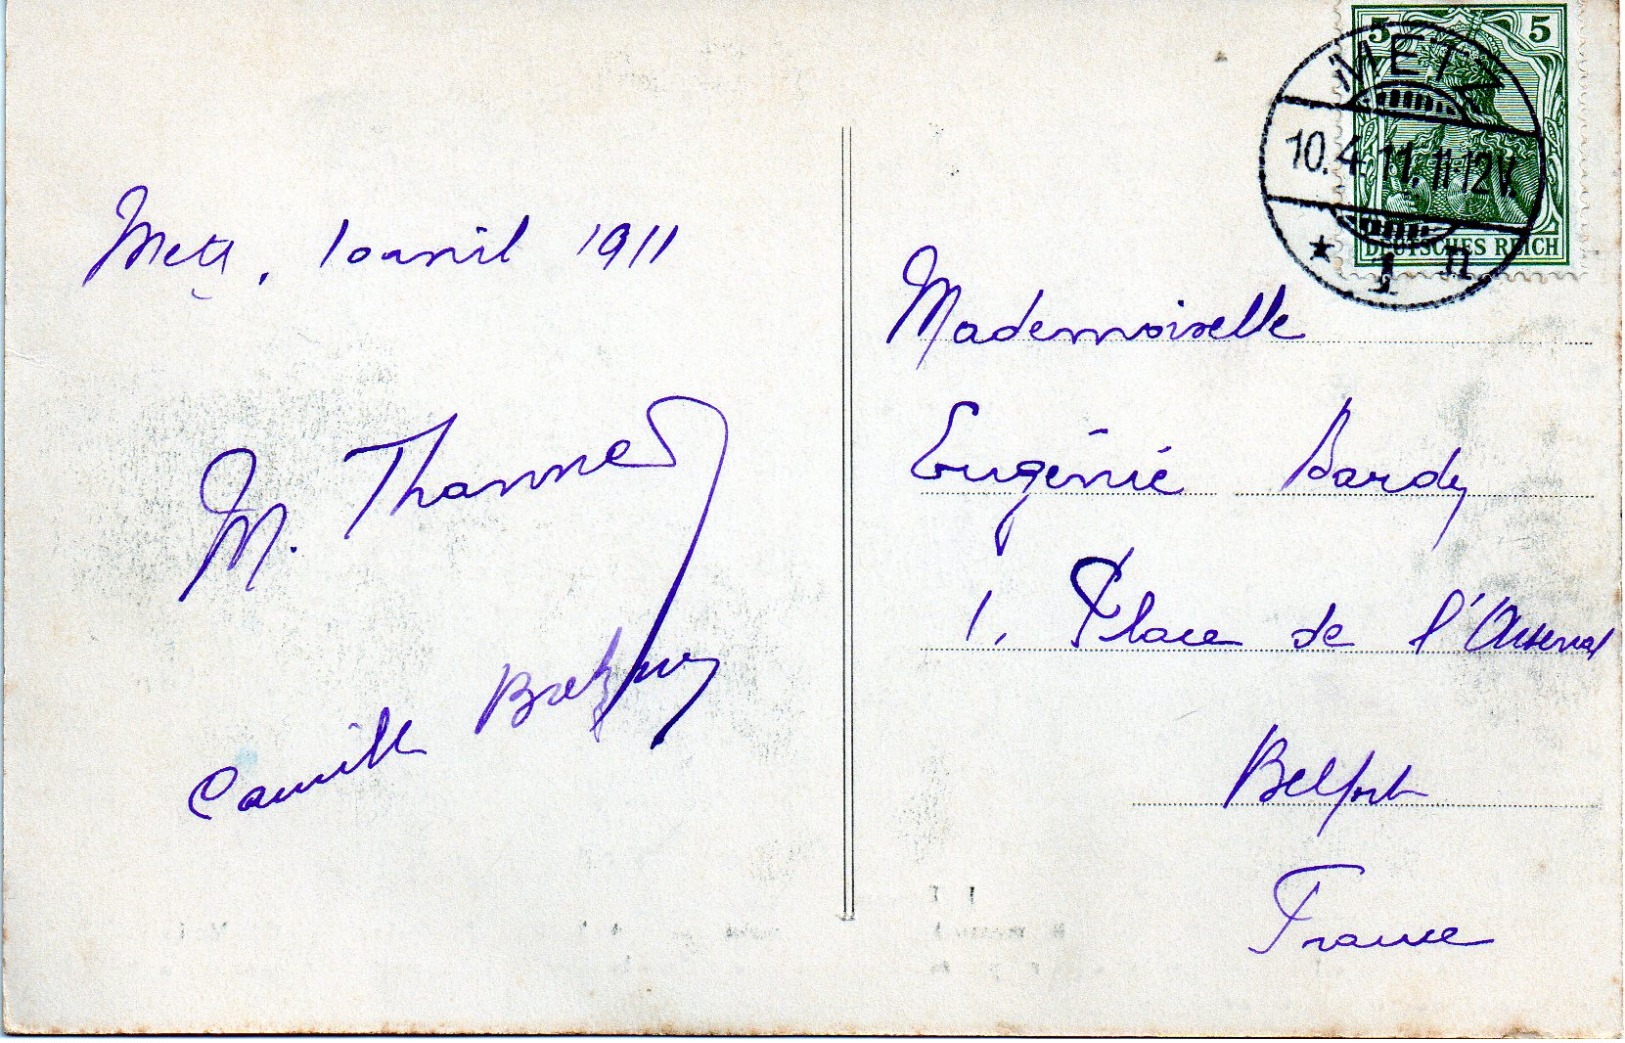 Metz, 10 avril 1911
M.
Camille
5 5
METZ
10.4.11.11-12V.
* 1 n
DEUTSCHES REICH
Mademoiselle
Eugénie Bardy
1, Place de l'Arsenal
Belfort
France